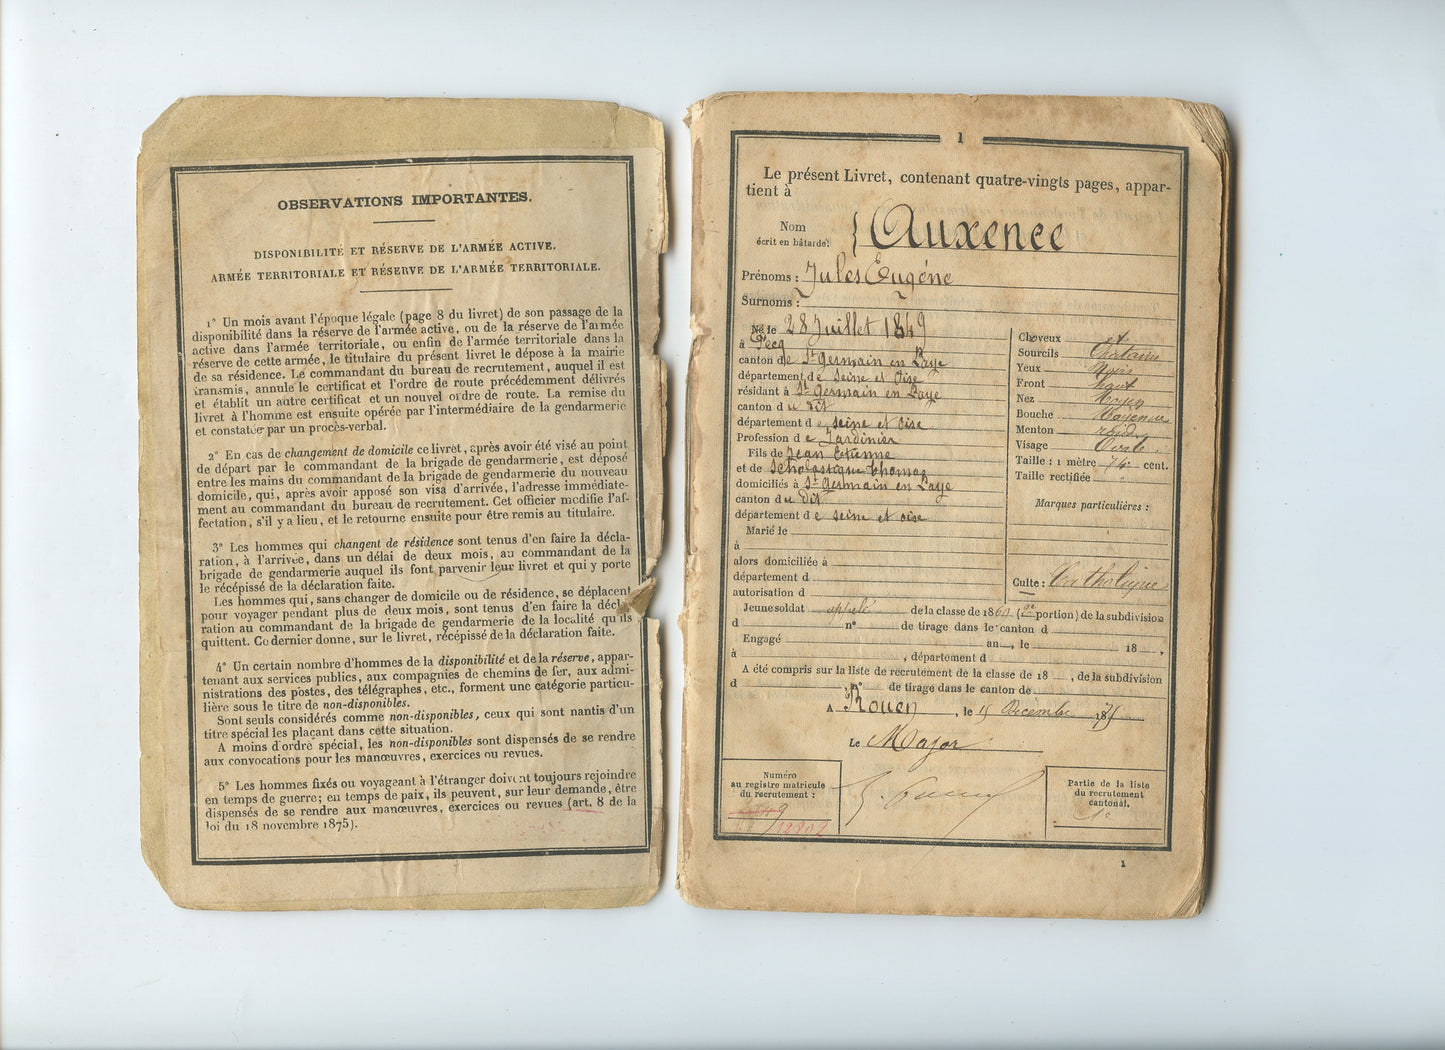 OBSERVATIONS IMPORTANTES.
DISPONIBILITÉ ET RÉSERVE DE L'ARMÉE ACTIVE.
ARMÉE TERRITORIALE ET RÉSERVE DE L'ARMÉE TERRITORIALE.
1° Un mois avant l'époque légale (page 8 du livret) de son passage de la
disponibilité dans la réserve de l'armée active, ou de la réserve de l'armée
active dans l'armée territoriale, ou enfin de l'armée territoriale dans la
réserve de cette armée, le titulaire du présent livret le dépose à la mairie
de sa résidence. Le commandant du bureau de recrutement, auquel il est
transmis, annule le certificat et l'ordre de route précédemment délivrés
et établit un autre certificat et un nouvel ordre de route. La remise du
livret à l'homme est ensuite opérée par l'intermédiaire de la gendarmerie
et constatée par un procès-verbal.
2° En cas de changement de domicile ce livret, après avoir été visé au point
de départ par le commandant de la brigade de gendarmerie, est déposé
entre les mains du commandant de la brigade de gendarmerie du nouveau
domicile, qui, après avoir apposé son visa d'arrivée, l'adresse immédiate-
ment au commandant du bureau de recrutement. Cet officier modifie l'af-
fectation, s'il y a lieu, et le retourne ensuite pour être remis au titulaire.
3° Les hommes qui changent de résidence sont tenus d'en faire la décla-
ration, à l'arrivée, dans un délai de deux mois, au commandant de la
brigade de gendarmerie auquel ils font parvenir leur livret et qui y porte
le récépissé de la déclaration faite.
Les hommes qui, sans changer de domicile ou de résidence, se déplacent
pour voyager pendant plus de deux mois, sont tenus d'en faire la décla-
ration au commandant de la brigade de gendarmerie de la localité qu'ils
quittent. Ce dernier donne, sur le livret, récépissé de la déclaration faite.
4° Un certain nombre d'hommes de la disponibilité et de la réserve, appar-
tenant aux services publics, aux compagnies de chemins de fer, aux admi-
nistrations des postes, des télégraphes, etc., forment une catégorie particu-
lière sous le titre de non-disponibles.
Sont seuls considérés comme non-disponibles, ceux qui sont nantis d'un
titre spécial les plaçant dans cette situation.
A moins d'ordre spécial, les non-disponibles sont dispensés de se rendre
aux convocations pour les manœuvres, exercices ou revues.
5° Les hommes fixés ou voyageant à l'étranger doivent toujours rejoindre
en temps de guerre; en temps de paix, ils peuvent, sur leur demande, être
dispensés de se rendre aux manœuvres, exercices ou revues (art. 8 de la
loi du 18 novembre 1875).
1
Le présent Livret, contenant quatre-vingts pages, appar-
tient à
Nom
écrit en bâtarde. { Auxence
Prénoms : Jules Eugéne
Surnoms :
Né le 28 Juillet 1849
à Pecq
canton de St Germain en Laye
département de Seine et Oise
résidant à St Germain en Laye
canton du dit
département de seine et oise
Profession de Jardinier
Fils de Jean Etienne
et de Scholastique thomas
domiciliés à St Germain en Laye
canton du dit
département de seine et oise
Marié le
à
alors domiciliée à
département d
autorisation d
Cheveux et
Sourcils Chatains
Yeux Noirs
Front haut
Nez Moyen
Bouche Moyenne
Menton rond
Visage Ovale
Taille : 1 mètre 74 cent.
Taille rectifiée
Marques particulières :
Culte : Catholique
Jeune soldat appelé de la classe de 1869 (2e portion) de la subdivision
d n° de tirage dans le canton d
Engagé an , le 18 ,
à , département d
A été compris sur la liste de recrutement de la classe de 18 , de la subdivision
d , n° de tirage dans le canton de
A Rouen , le 15 Décembre 1875
Le Major
Numéro
au registre matricule
du recrutement :
Partie de la liste
du recrutement
cantonal.
1